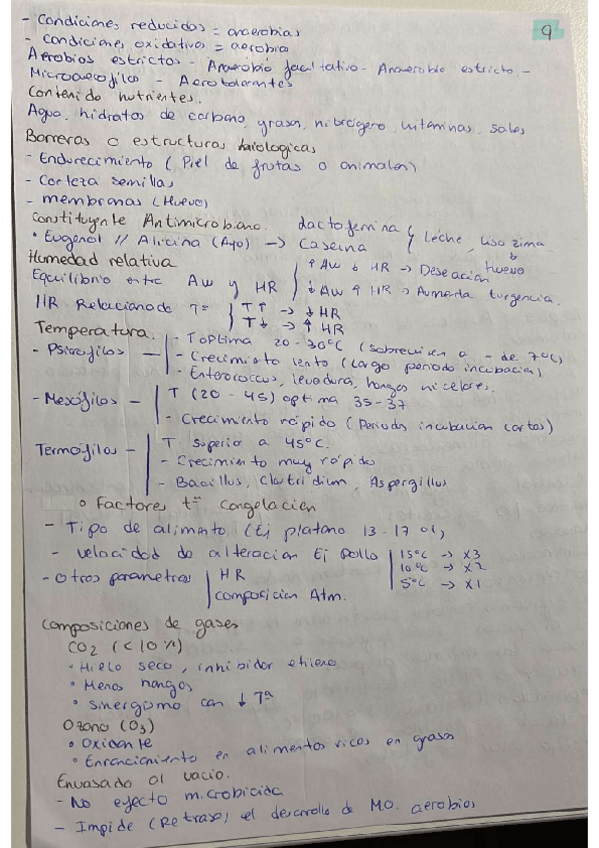 - Condiciones reducidas = anaerobias
9
- Condiciones oxidativas = aerobia
Aerobios estrictos - Anaerobio facultativo - Anaerobio estricto -
Microaerofilos - Aerotolerantes
Contenido nutrientes.
Agua, hidratos de carbono, grasas, nitrógeno, vitaminas, sales
Barreras o estructuras biologicas
- Endurecimiento (Piel de frutas o animales)
- Corteza semillas
- membranas (Huevo)
Constituyente Antimicrobano. Lactoferrina
• Eugenol // Alicina (Ajo) → Caseina } Leche, Lisozima
↓ Huevo
Humedad relativa
Equilibrio entre Aw y HR
↑ Aw ↓ HR → Deseacion
↓ Aw ↑ HR → Aumenta turgencia.
HR Relacionado Tª } T↑ → ↓ HR
T↓ → ↑ HR
Temperatura.
- Psicrofilos — - Tóptima 20 - 30°C (sobreviven a - de 7°C)
- Crecimiento lento (Largo periodo incubacion)
- Enterococcus, levadura, hongos micelares.
- Mesófilos - T (20 - 45) optima 35-37
- Crecimiento rápido (Periodos incubacion cortos)
Termofilos - T superio a 45°C.
- Crecimiento muy rápido
- Bacillus, Clostridium, Aspergillus
o Factores tª congelacion
- Tipo de alimento (Ej platano 13-17 °C)
- velocidad de alteracion Ej pollo | 15°C → x3
10°C → x2
5°C → x1
- Otros parametros | HR
composicion Atm.
Composiciones de gases
CO2 (<10%)
• Hielo seco, inhibidor etileno
• Menos hongos
• Sinergismo con ↓ Tª
Ozono (O3)
• Oxidante
• Enranciamiento en alimentos ricos en grasas
Envasado al vacio.
- No efecto microbicida
- Impide (Retrasa) el desarrollo de MO. aerobios